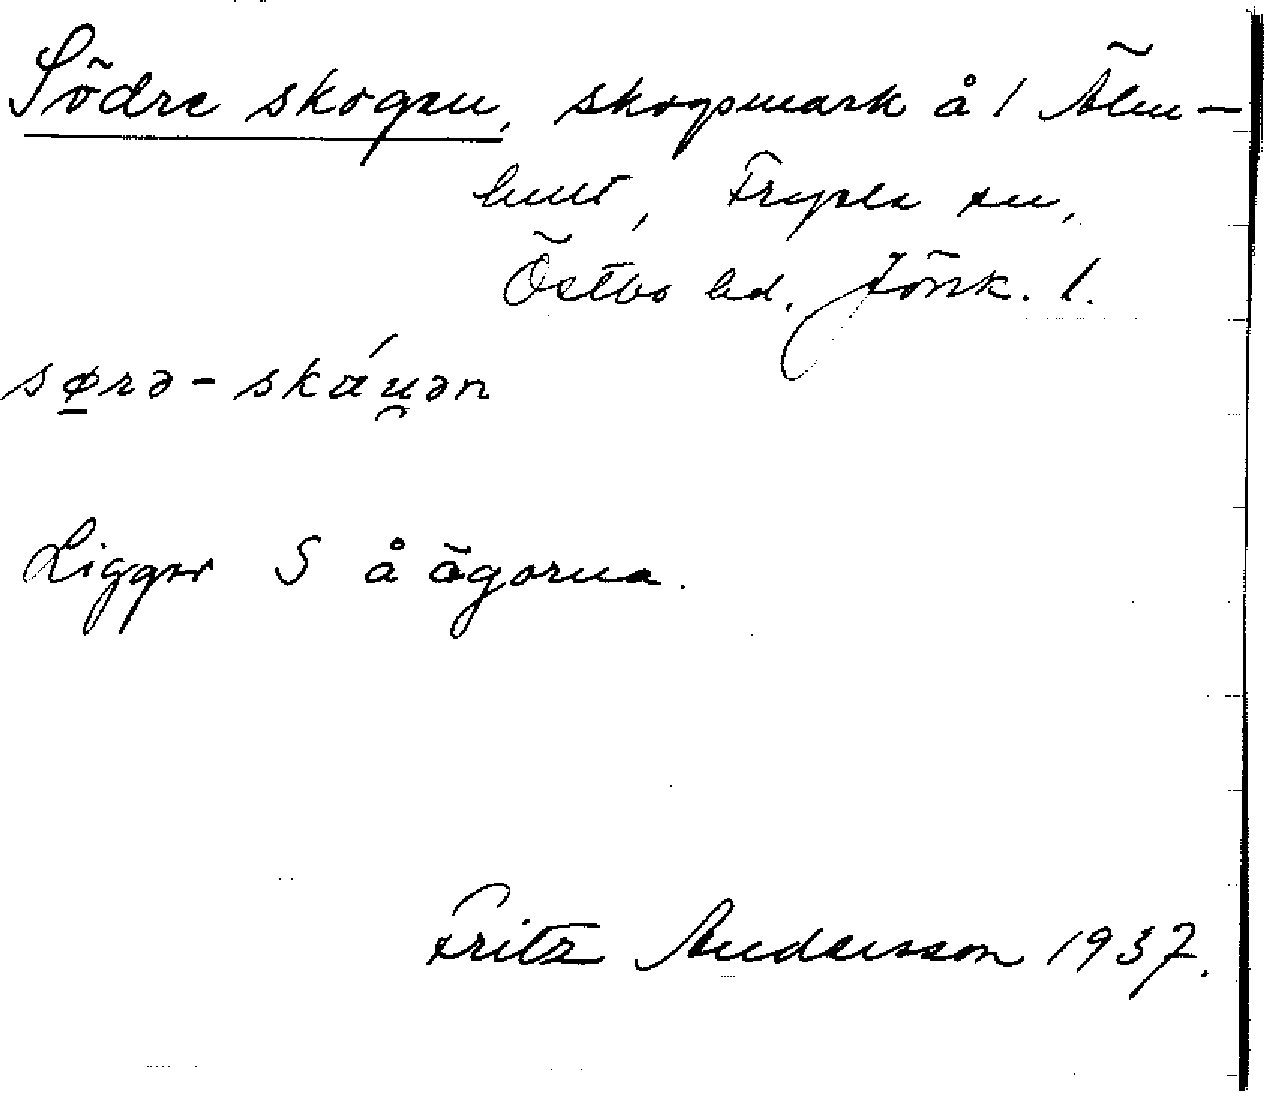 Södre skogen, skogsmark å 1 Älm-
hult, Fryele sn,
Östbo hd. Jönk. l.
sø̱rə-skáu̯ən
Ligger S å ägorna.
Fritz Andersson 1937.